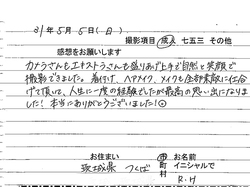 31年5月5日(日)
撮影項目 成人 七五三 その他
感想をお願いします
カメラさんもエキストラさんも盛りあげ上手で自然と笑顔で
撮影できました。着付け、ヘアメイク、メイクも全部素敵に仕合
げて頂け、人生に一度の経験でしたが最高の思い出になりま
した!本当にありがとうございました!
お住まい 市町村 お名前
茨城県 つくば イニシャルで
R.H